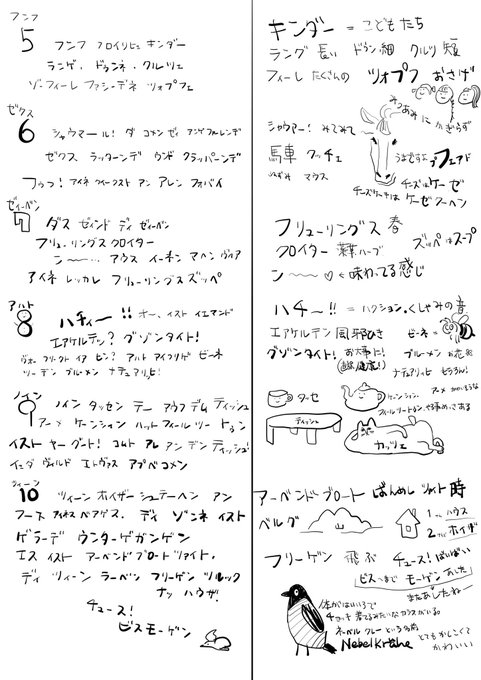 フンフ
5 フンフ フロイリヒェ キンダー
ランゲ、ドゥンネ、クルツェ
ゾーフィーレ ファシーデネ ツォプフェ
ゼクス
6 シャウマール! ダ コメン ゼィ アンゲフルレンデ
ゼクス ラッターンデ ウンド クラッパーンデ
フゥっ! アイネ クイークスト アン アレン フォバイ
ズィーベン
7 ダス ズィンド ディ ズィーベン
フリューリングス クロイター
ン〜〜… アウス イーネン マヘン ヴィア
アイネ レッカレ フリューリングスズッペ
アハト
8 ハチィー!! オー、イスト イエマンド
エアケルテン? グゾンタイト!
ツーデン ブルーメン ナチュアリッヒ!
ノイン
9 ノイン タッセン テー アウフ デム ティッシュ
アーメ ケンシェン ハット フィール ツー トゥン
イスト ヤー グート! コムト アレ アン デン ティッシュ!
イェダ ヴィルド エトヴァス アプベコメン
ツィーン
10 ツィーン ホイザー シュテーヘン アン
フース アイネス ベアゲス、ディ ゾンネ イスト
ゲラーデ ウンターゲガンゲン
エス イスト アーベンド ブロート ツァイト。
ディ ツィーン ラーベン フリーゲン ツルック
ナッ ハウザ!
チュース!
ビスモーゲン
キンダー = こどもたち
ラング 長い ドゥン 細 クルツ 短
フィーレ たくさんの ツォプフ おさげ
みつあみに かぎらず
シャウアー! みてみて〜
馬車 クッチェ うまですよ プフェアド
ねずみ マウス チーズはケーゼ
チーズケーキは ケーゼクーヘン
フリューリングス 春
クロイター 薬草ハーブ ズッペはスープ
ン〜〜〜 ♡ ← 味わってる感じ
ハチー!! = ハクション。くしゃみの音
エアケルテン 風邪ひき ビーネ=
グゾンタイト! お大事に! ブルーメン お花
ナチュアリッヒ もちろん!
アーメ かわいそうな
ターセ ケーンシェン。
ティッシュ
カッツェ
アーベンドブロート ばんめし ツァイト 時
ベルグ 山 1つ ハウス
2つ ホイザ
フリーゲン 飛ぶ チュース! ばいばい
ビス〜まで モーゲン あした
またあしたねー
体がはいいろで
チョッキ 着てるみたいな カラスがいる。
ネーベル クレー という名前
Nebelkrähe とてもかしこくて
かわいい